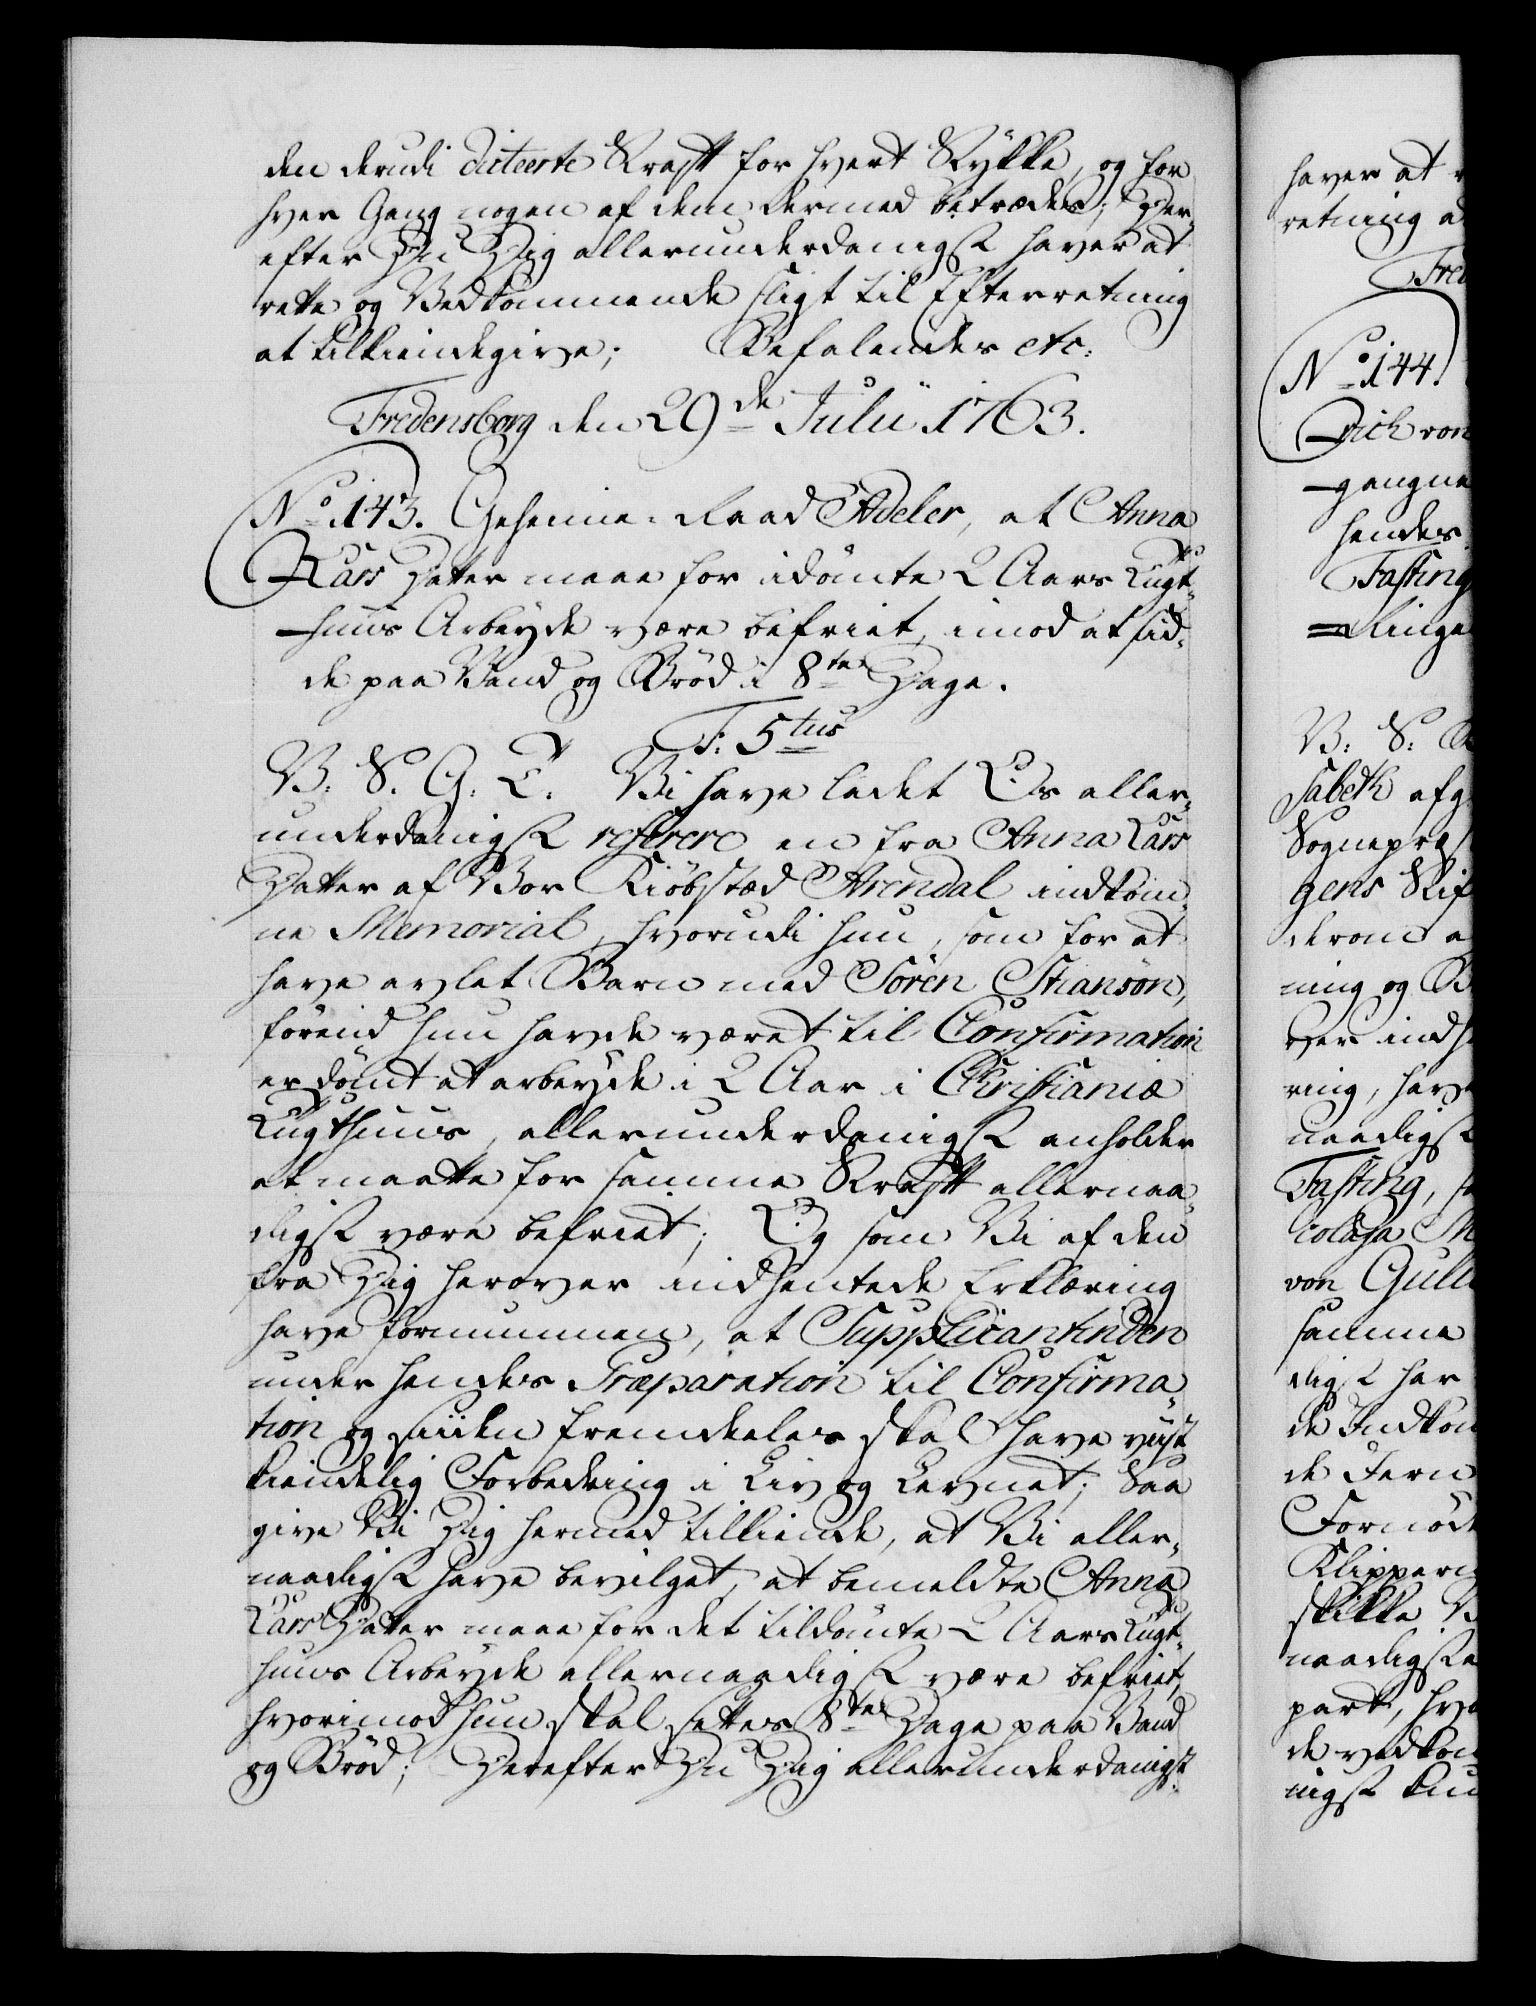 den derudi dicteerte Straff for hvert Stykke, og for
hver Gang nogen af dem dermed betrædes; Der-
efter Du Dig allerunderdanigst haver at
rette og Vedkommende sligt til Efterretning
at tilkiendegive; Befalendes etc:
Fredensborg den 29de Julii 1763.
No 143. Geheime-Raad Adeler, at Anna
Lars Datter maae for idømte 2 Aars Tugt-
huus Arbeyde være befriet, imod at sid-
de paa Vand og Brød i 8te Dage.
F: 5tus
V: S. G. T. Vi have ladet Os aller-
underdanigst referere en fra Anna Lars
Datter af Vor Kiøbstæd Arendal indkom-
ne Memorial, hvorudi hun, som for at
have avlet Barn med Sören Stiansøn,
førend hun havde været til Confirmation
er dømt at arbeyde i 2 Aar i Christianiæ
Tugthuus, allerunderdanigst anholder
at maatte for samme Straff allernaa-
digst være befriet; Og som Vi af den
fra Dig herover indhentede Erklæring
have fornummen, at Supplicantinden
under hendes Præparation til Confirma-
tion og siiden fremdeles skal have viist
kiendelig Forbedring i Liv og Levnet; Saa
give Vi Dig hermed tilkiende, at Vi aller-
naadigst have bevilget, at bemeldte Anna
Lars Datter maae for det tildømte 2 Aars Tugt-
huus Arbeyde allernaadigst være befriet,
hvorimod hun skal settes 8te Dage paa Vand
og Brød; Derefter Du Dig allerunderdanigst
haver at
retning
Fred
No 144.
Dich von
gangne
hendes
Fasting
Ringe
V: S:
sabeth afg
Sognepræs
gens Stif
derom a
ning og B
ver indh
ring, have
naadigst
Fasting,
colaja M
von Guld
samme
digst har
de Indkom
de Jern
Fornød
Klippern
skikke V
naadigst
part, hvo
de vedkom
nigst